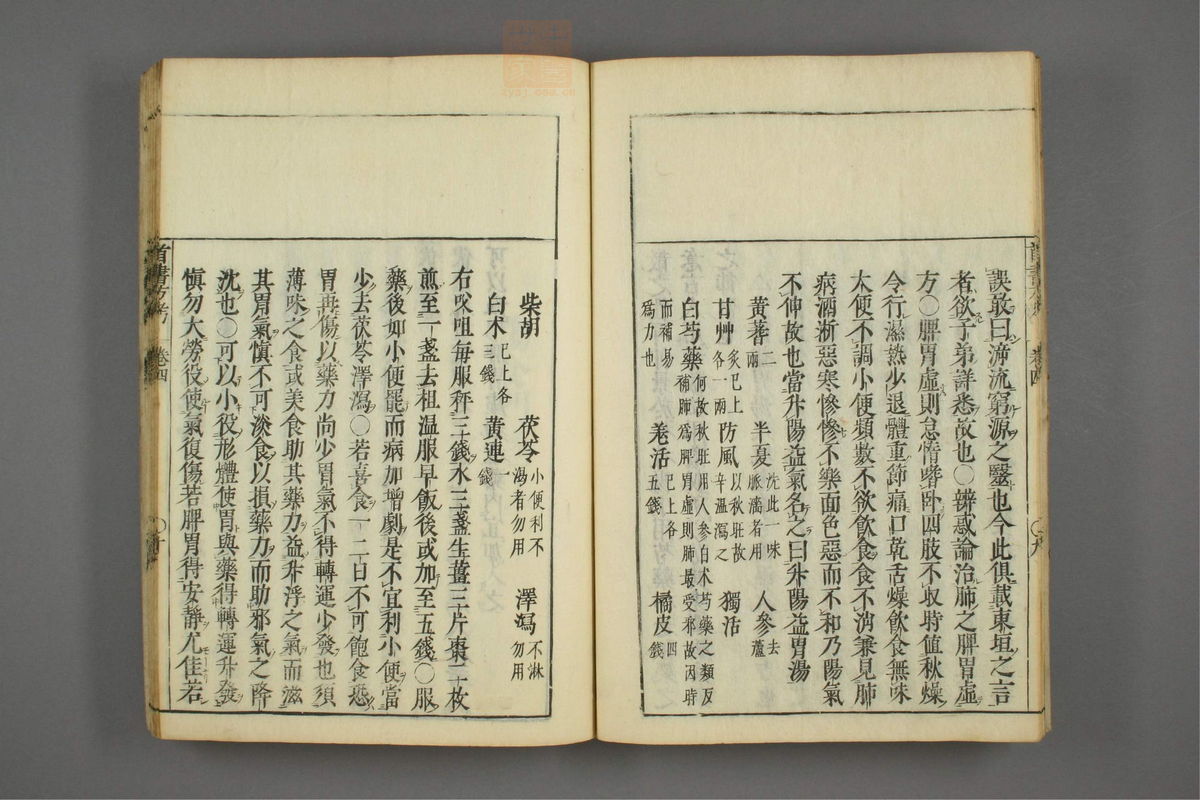 誤敢曰漳流窮源之毉也今此俱載東垣之言
者欲子弟詳悉故也〇辨惑論治肺之脾胃虛
方〇脾胃虛則怠惰嗜卧四肢不収時值秋燥
令行濕熱少退體重節痛口乾舌燥飲食無味
大便不調小便頻數不欲飲食食不消兼見肺
病洒淅惡寒慘慘不樂面色惡而不和乃陽氣
不伸故也當升陽益氣名之曰升陽益胃湯
黃蓍二兩 半夏沈此一味脈濇者用 人參去蘆
甘艸炙已上各一兩 防風以秋旺故辛溫瀉之 獨活
白芍藥何故秋旺用人參白朮芍藥之類反補肺爲脾胃虛則肺最受邪故因時
而補易爲力也 羌活已上各五錢 橘皮四錢
柴胡 茯苓小便利不渴者勿用 澤瀉不淋勿用
白朮已上各三錢 黃連一錢
右㕮咀每服秤三錢水三盞生薑三片棗二枚
煎至一盞去柤温服早飯後或加至五錢〇服
藥後如小便罷而病加增劇是不宜利小便當
少去茯苓澤瀉〇若喜食一二日不可飽食恐
胃再傷以藥力尚少胃氣不得轉運少發也須
薄味之食或美食助其藥力益升浮之氣而滋
其胃氣慎不可淡食以損藥力而助邪氣之降
沈也〇可以小役形體使胃與藥得轉運升發
慎勿大勞役使氣復傷若脾胃得安靜尤佳若
卷四